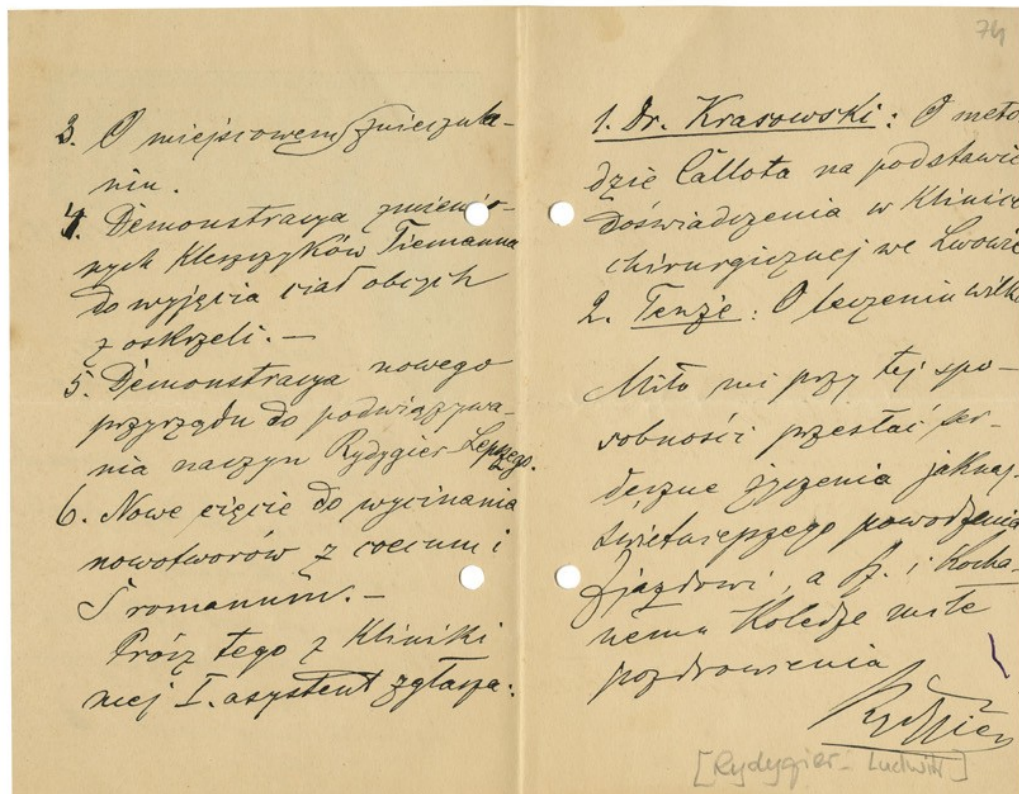 3. O miejscowem znieczula-
niu.
4. Demonstracya zmienio-
nych Kleszczyków Tiemanna
do wyjęcia ciał obcych
z oskrzeli. —
5. Demonstracya nowego
przyrządu do podwiązywa-
nia naczyn Rydygier
6. Nowe cięcie do wycinania
nowotworów z coecum i
S romanum. —
Prócz tego z Kliniki
mej I. asystent zgłasza:
74
1. Dr. Krasowski: O meto
dzie Callota na podstawie
doświadczenia w Klinice
chirurgicznej we Lwowie
2. Tenże: O leczeniu wilka
Miło mi przy tej spo-
sobności przesłać ser-
deczne życzenia jaknaj-
świetniejszego powodzenia
Zjazdowi, a Sz. i Kocha-
nemu Koledze miłe
pozdrowienia
Rydygier
[Rydygier - Ludwik]